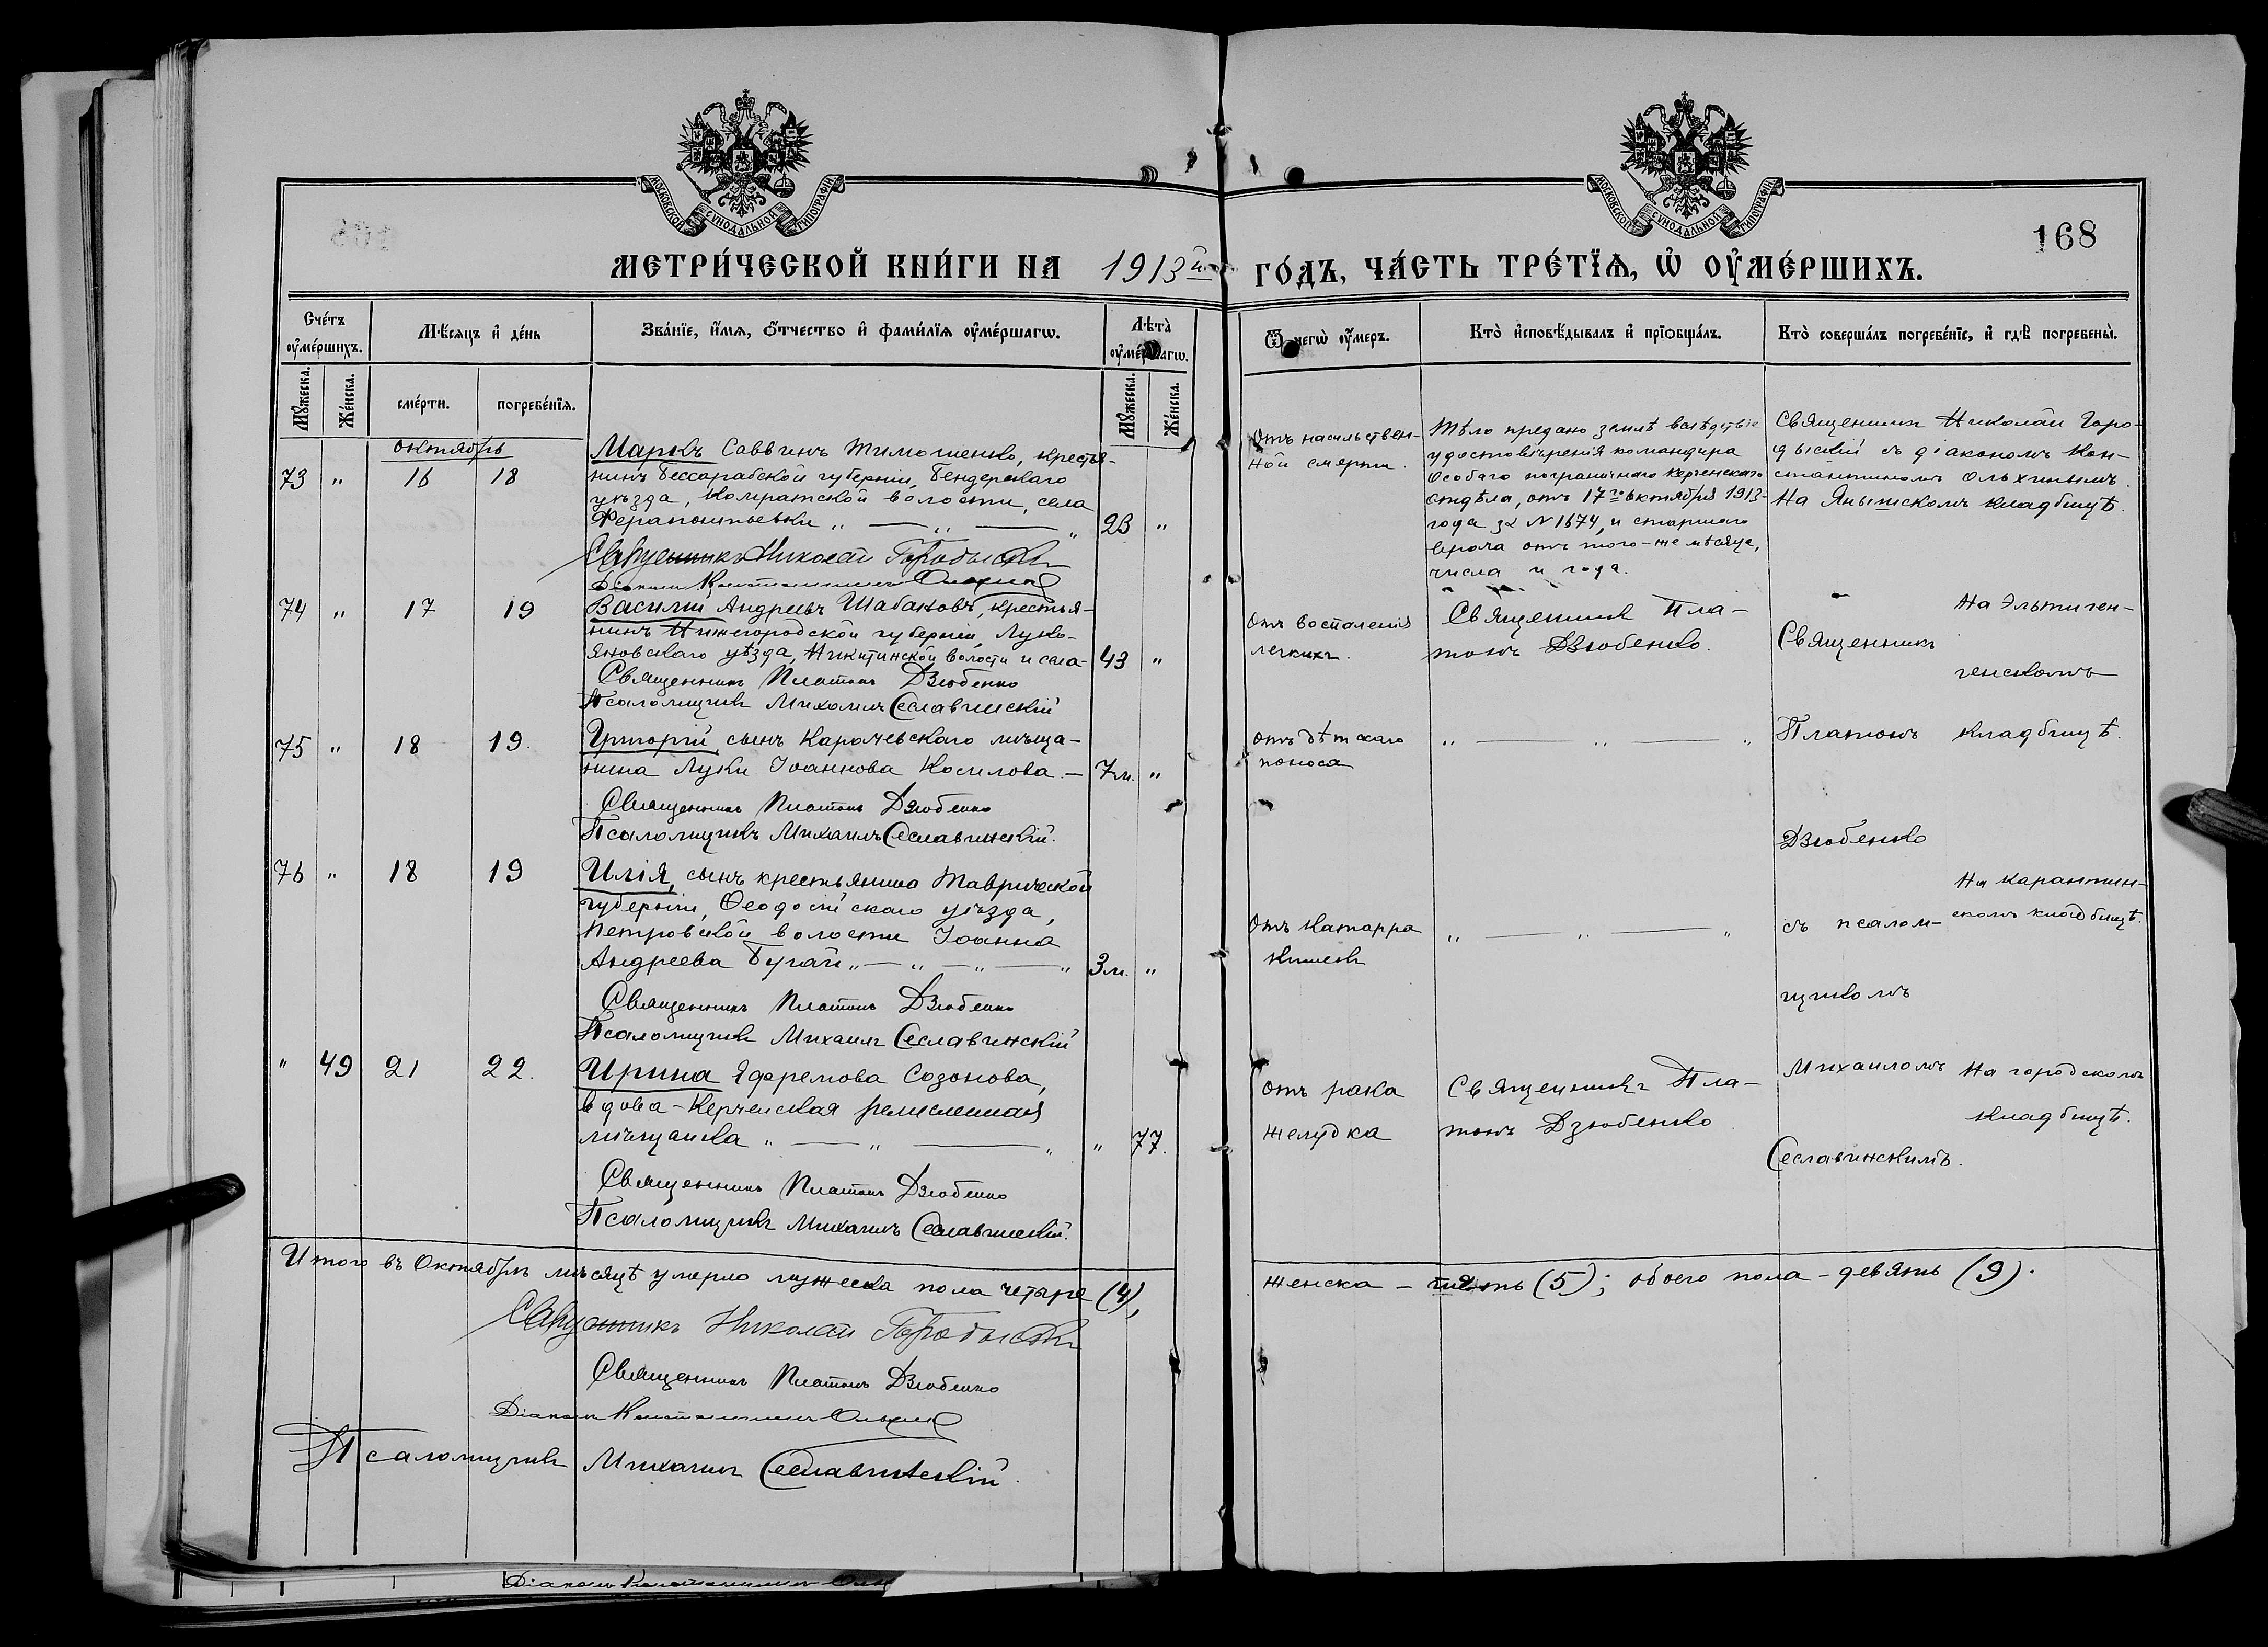 МОСКОВСКОЙ СѴНОДАЛЬНОЙ ТИПОГРАФІИ
МЕТРИ́ЧЕСКОЙ КНИ́ГИ НА 1913й
Сче́тъ ᲂу҆ме́ршихъ.
Мѣ́сяцъ и҆ де́нь
Зва́нїе, и҆́мѧ, ѻ҆́тчество и҆ фами́лїѧ ᲂу҆ме́ршагѡ.
Лѣ́та ᲂу҆ме́ршагѡ.
Мꙋ́жеска.
Же́нска.
сме́рти.
погребе́нїѧ.
Мꙋ́жеска.
Же́нска.
октябрь
73 " 16 18
Маркъ Саввинъ Тимошенко, крестья-
нинъ Бессарабской губерніи, Бендерскаго
уѣзда, Комратской волости, села
Ферапонтьевки " — " — " 23 "
Священникъ Николай Городыскій
Діаконъ Константинъ Ольхинъ
74 " 17 19
Василій Андреевъ Шабановъ, крестья-
нинъ Нижегородской губерніи, Луко-
яновскаго уѣзда, Никитинской волости и села- 43 "
Священникъ Платонъ Дзюбенко
Псаломщикъ Михаилъ Сеславинскій
75 " 18 19.
Григорій, сынъ Карачевскаго мѣща-
нина Луки Іоаннова Косилова. — 7м. "
Священникъ Платонъ Дзюбенко
Псаломщикъ Михаилъ Сеславинскій.
76 " 18 19
Илія, сынъ крестьянина Таврической
губерніи, Ѳеодосійскаго уѣзда,
Петровской волости Іоанна
Андреева Бугай " — " — " — " 3м. "
Священникъ Платонъ Дзюбенко
Псаломщикъ Михаилъ Сеславинскій
" 49 21 22.
Ирина Яфремова Созонова,
вдова - Керченская ремесленная
мѣщанка " — " — " " 77.
Священникъ Платонъ Дзюбенко
Псаломщикъ Михаилъ Сеславинскій.
Итого въ Октябрѣ мѣсяцѣ умерло мужеска пола четыре (4),
Священникъ Николай Городыскій
Священникъ Платонъ Дзюбенко
Діаконъ Константинъ Ольхинъ
Псаломщикъ Михаилъ Сеславинскій.
Діаконъ Константинъ
МОСКОВСКОЙ СѴНОДАЛЬНОЙ ТИПОГРАФІИ
168
ГО́ДЪ, ЧА́СТЬ ТРЕ́ТЇѦ, Ѡ҆ ОУ҆МЕ́РШИХЪ.
Ѿ чегѡ̀ ᲂу҆́меръ.
Кто̀ и҆сповѣ́дывалъ и҆ прїѻбща́лъ.
Кто̀ соверша́лъ погребе́нїе, и҆ гдѣ̀ погребены̀.
Отъ насильствен-
ной смерти.
Тѣло предано землѣ вслѣдствіе
удостовѣренія командира
Особаго пограничнаго Керченскаго
отдѣла, отъ 17го Октября 1913-
года за N 1674, и старшаго
врача отъ того-же мѣсяца,
числа и года.
Священникъ Николай Горо-
дыскій съ діакономъ Кон-
стантиномъ Ольхинымъ.
На Янышскомъ кладбищѣ.
Отъ воспаленія
легкихъ.
Священникъ Пла-
тонъ Дзюбенко.
Священникъ
На Эльтиген-
генскомъ
отъ дѣтскаго
поноса
" — " — "
Платонъ
кладбищѣ.
Дзюбенко
Отъ катарра
кишекъ
" — " — "
съ псалом-
На карантин-
скомъ кладбищѣ.
щикомъ
отъ рака
желудка
Священникъ Пла-
тонъ Дзюбенко
Михаиломъ
На городскомъ
кладбищѣ.
Сеславинскимъ.
женска - пять (5); обоего пола - девять (9).